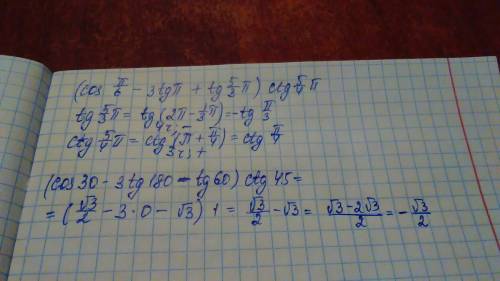 (cos π/6 - 3tgπ + tg 5/3 π) ctg 5/4 π
tg 5/3 π = tg(2π - 1/3 π) = -tg π/3
4 ч, -
ctg 5/4 π = ctg (π + π/4) = ctg π/4
3 ч +
(cos 30 - 3 tg 180 - tg 60) ctg 45 =
= (√3/2 - 3·0 - √3) 1 = √3/2 - √3 = (√3 - 2√3)/2 = -√3/2